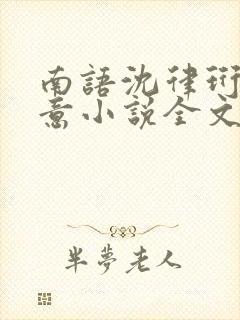 南語沈律珩
意小說全文
半夢老人